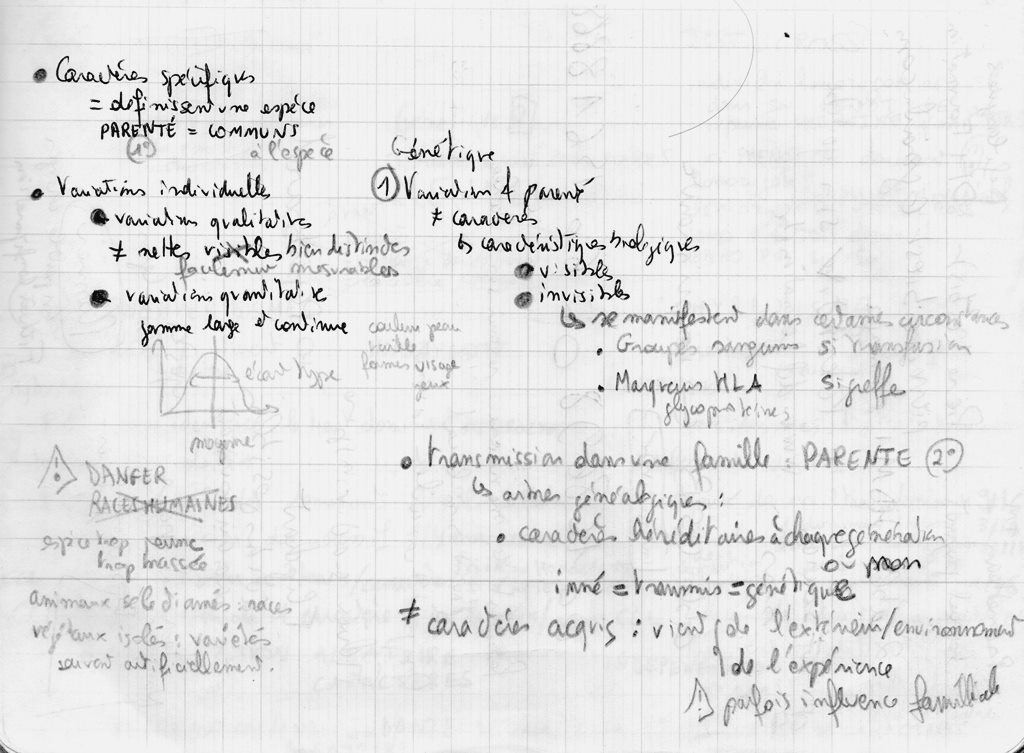 • Caractères spécifiques
= définissent une espèce
PARENTÉ = COMMUNS
(1°) à l'espèce
• Variations individuelles
• variations qualitatives
≠ nettes visibles bien distinctes
facilement mesurables
• variations quantitative
gamme large et continue
couleur peau
taille
formes visage
yeux
écart type
moyenne
! DANGER
RACES HUMAINES
espèce trop jeune
trop brassée
animaux sélectionnés : races
végétaux isolés : variétés
souvent artificiellement.
Génétique
① Variation & parenté
≠ caractères
↳ caractéristiques biologiques
• visibles
• invisibles
↳ se manifestent dans certaines circonstances
• Groupes sanguins si transfusion
• Marqueurs HLA si greffe
glycoprotéines
• transmission dans une famille : PARENTE (2°)
↳ arbres généalogiques :
• caractères héréditaires à chaque génération
ou non
inné = transmis = génétique
≠ caractères acquis : vient de l'extérieur/environnement
de l'expérience
! parfois influence familiale